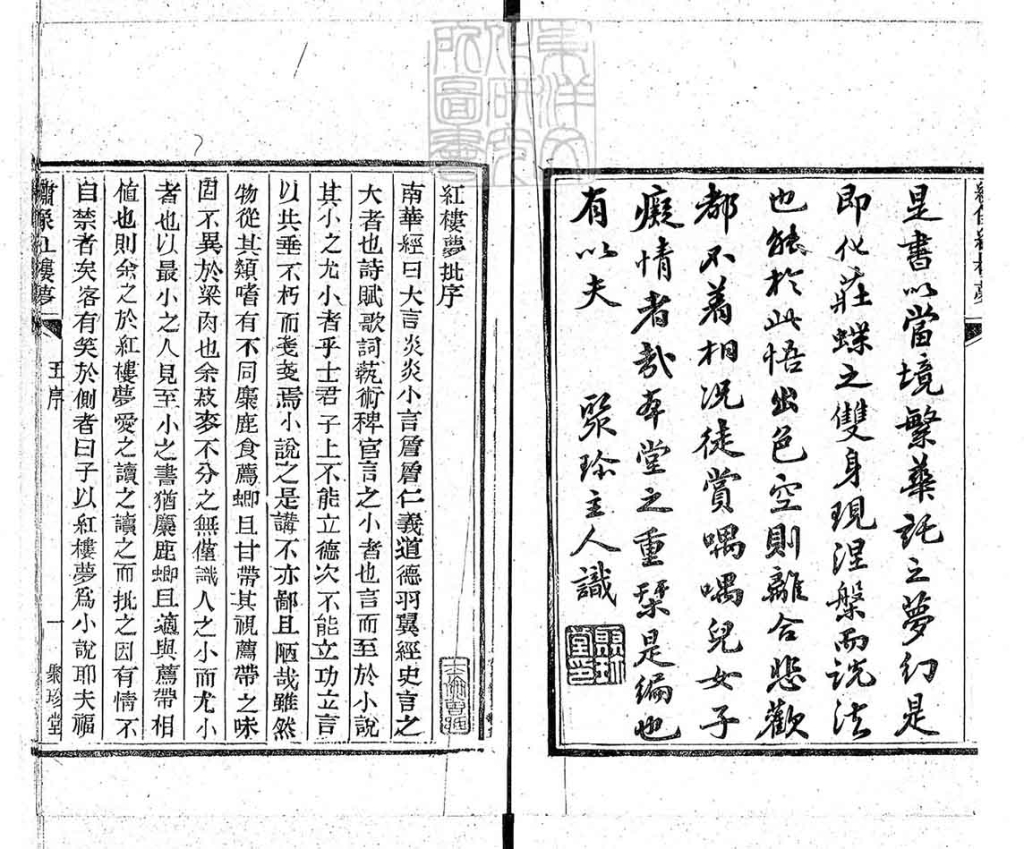 是書以當境繁華託之夢幻是
即化莊蝶之雙身現涅槃而説法
也能於此悟出色空則離合悲歡
都不着相况徒賞喁喁兒女子
癡情者哉本堂之重槧是編也
有以夫
聚珍主人識
聚珍堂印
東洋文化研究所圖書
紅樓夢批序
南華經曰大言炎炎小言詹詹仁義道德羽翼經史言之
大者也詩賦歌詞萟術稗官言之小者也言而至於小說
其小之尤小者乎士君子上不能立德次不能立功立言
以共垂不朽而戔戔焉小說之是講不亦鄙且陋哉雖然
物從其類嗜有不同麋鹿食薦蝍且甘帶其視薦帶之味
固不異於粱肉也余菽麥不分之無僅識人之小而尤小
者也以最小之人見至小之書猶麋鹿蝍且適與薦帶相
値也則余之於紅樓夢愛之讀之讀之而批之固有情不
自禁者矣客有笑於側者曰子以紅樓夢爲小說耶夫福
繡像紅樓夢
王序
一
聚珍堂